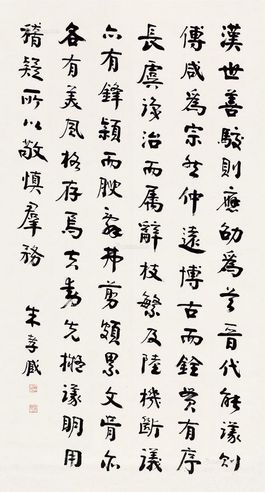 漢世善駮則應劭為首晉代能議則
傅咸為宗然仲遠博古而銓貫有序
長虞識治而屬辭枝繁及陸機斷議
亦有鋒穎而腴辭弗剪頗累文骨亦
各有美風格存焉夫動先擬議明用
稽疑所以敬慎羣務
朱孝臧